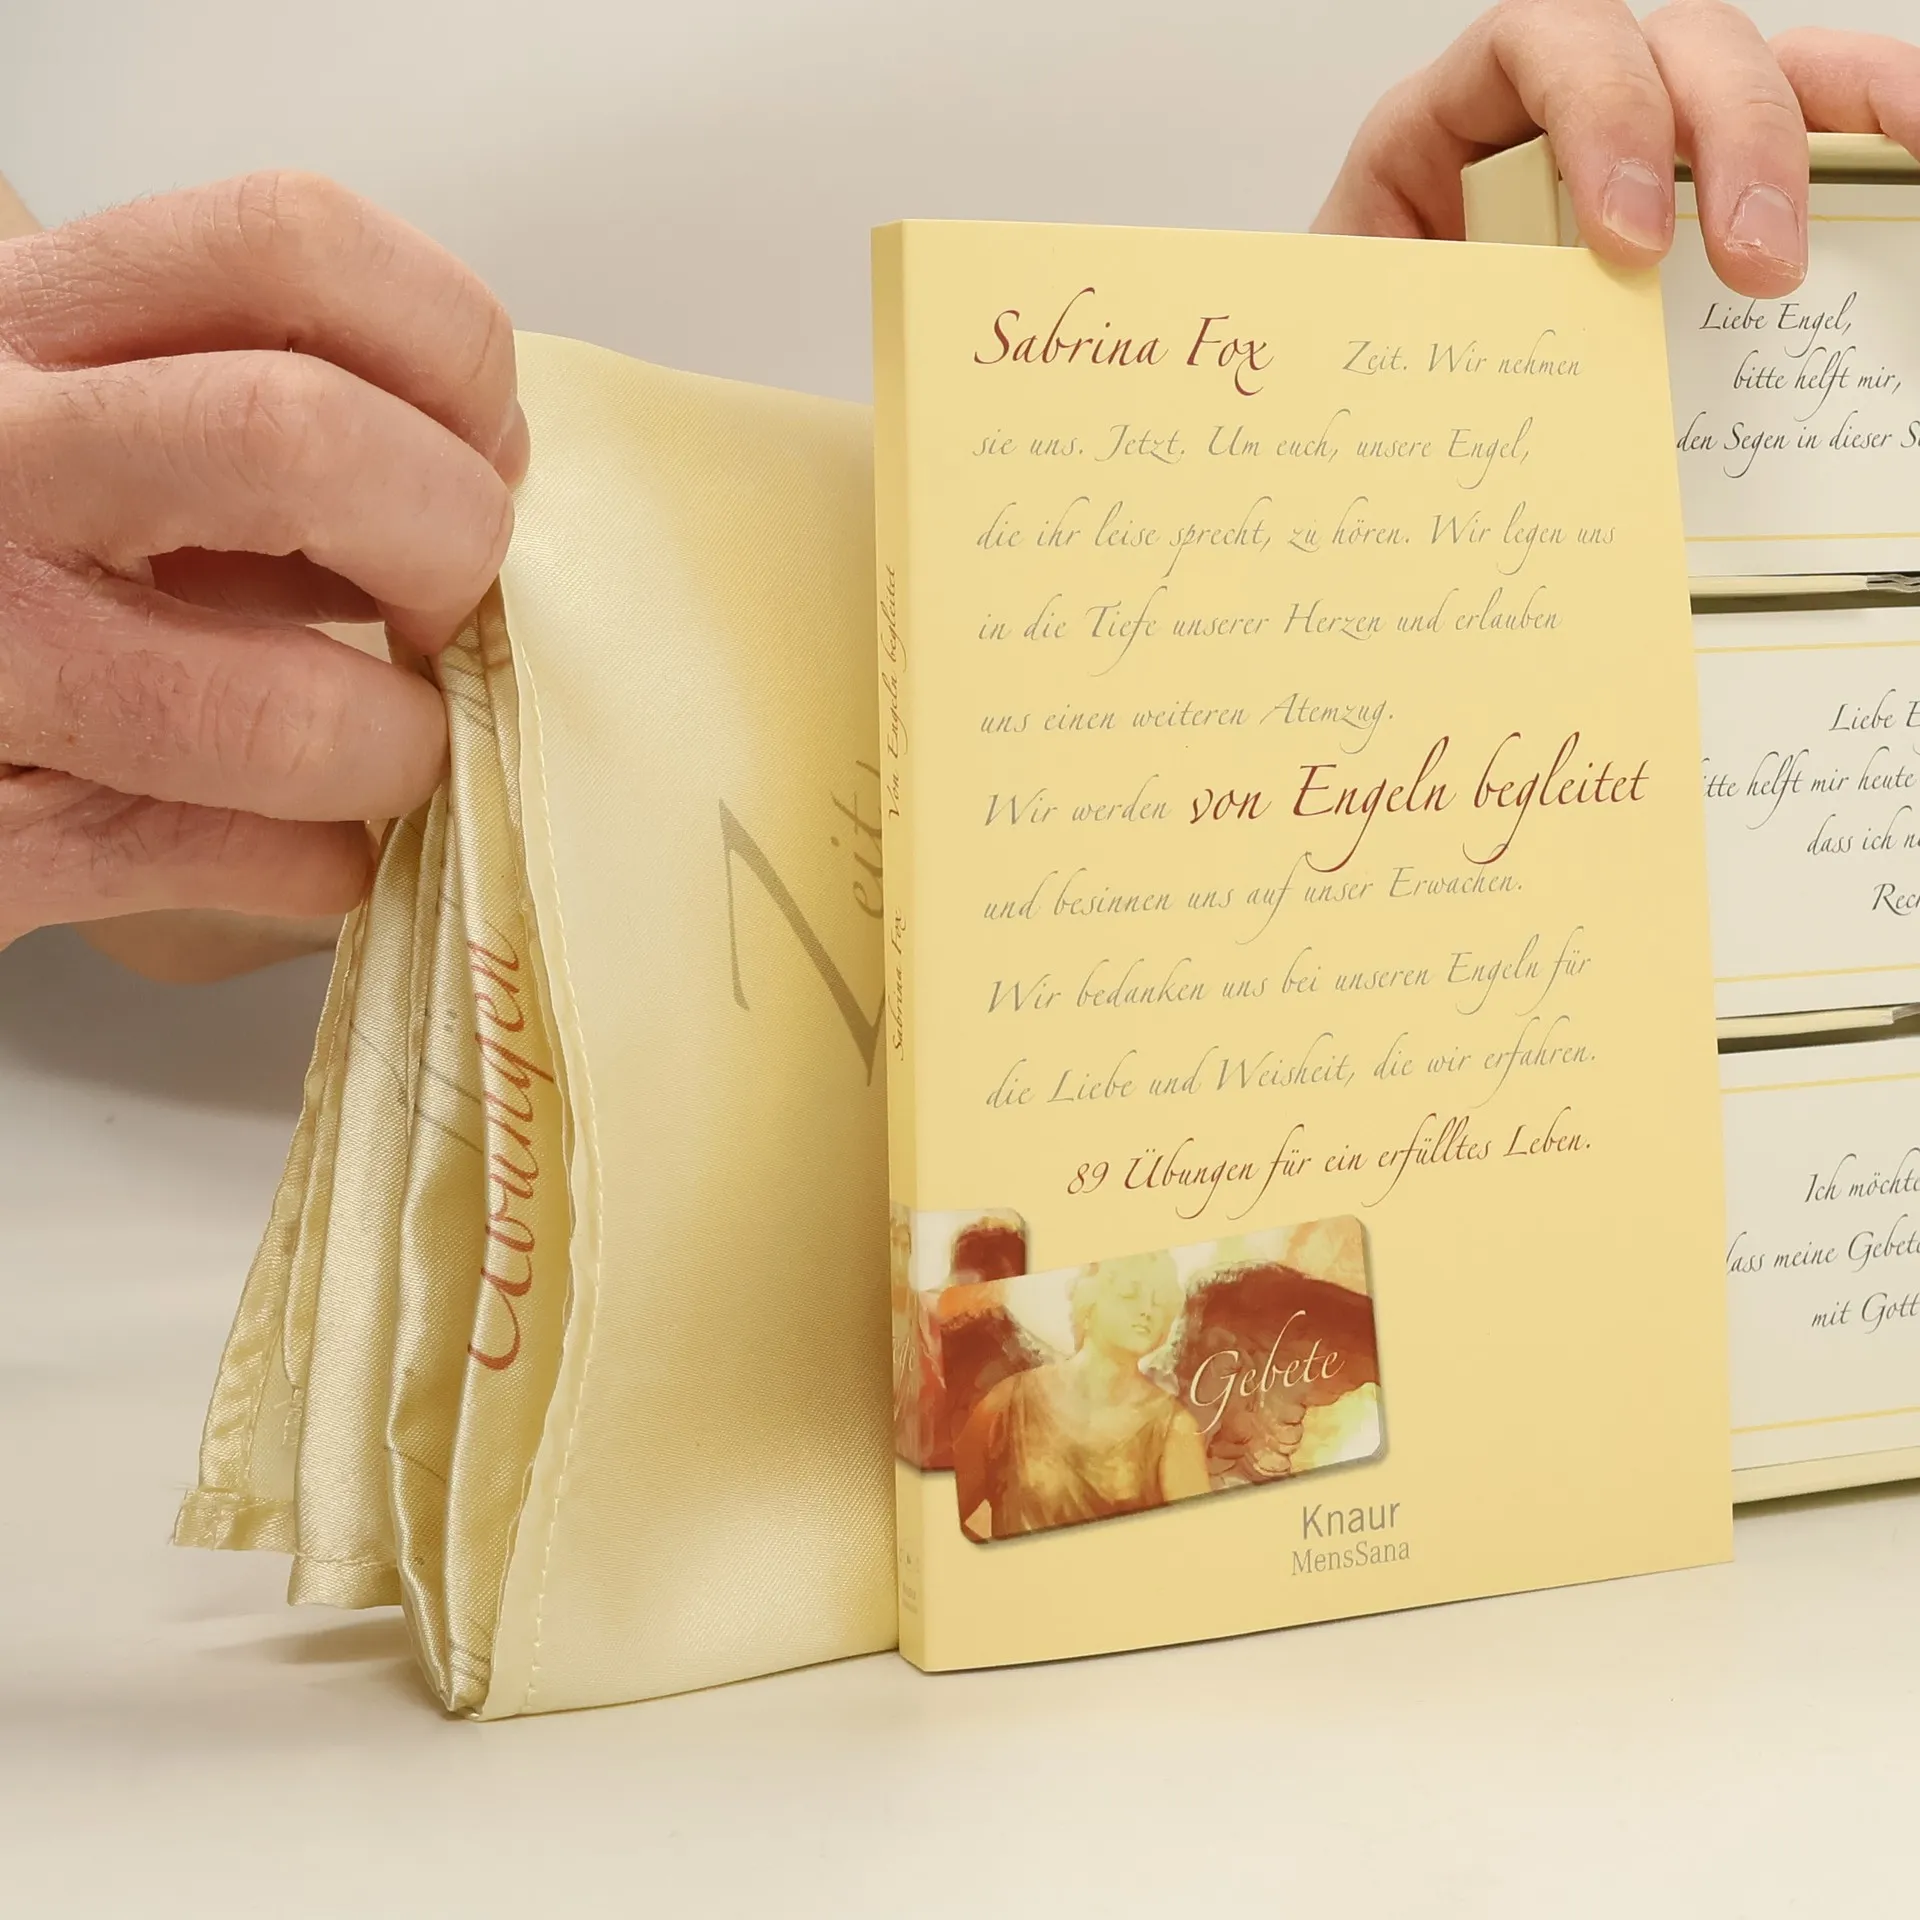 Sabrina Fox Zeit. Wir nehmen
sie uns. Jetzt. Um euch, unsere Engel,
die ihr leise sprecht, zu hören. Wir legen uns
in die Tiefe unserer Herzen und erlauben
uns einen weiteren Atemzug.
Wir werden von Engeln begleitet
und besinnen uns auf unser Erwachen.
Wir bedanken uns bei unseren Engeln für
die Liebe und Weisheit, die wir erfahren.
89 Übungen für ein erfülltes Leben.
Gebete
Knaur
MensSana
Sabrina Fox Von Engeln begleitet
Zeit
Liebe Engel,
bitte helft mir,
den Segen in dieser
Liebe
helft mir heute
dass ich
Ich möchte
dass meine Gebete
mit Gott